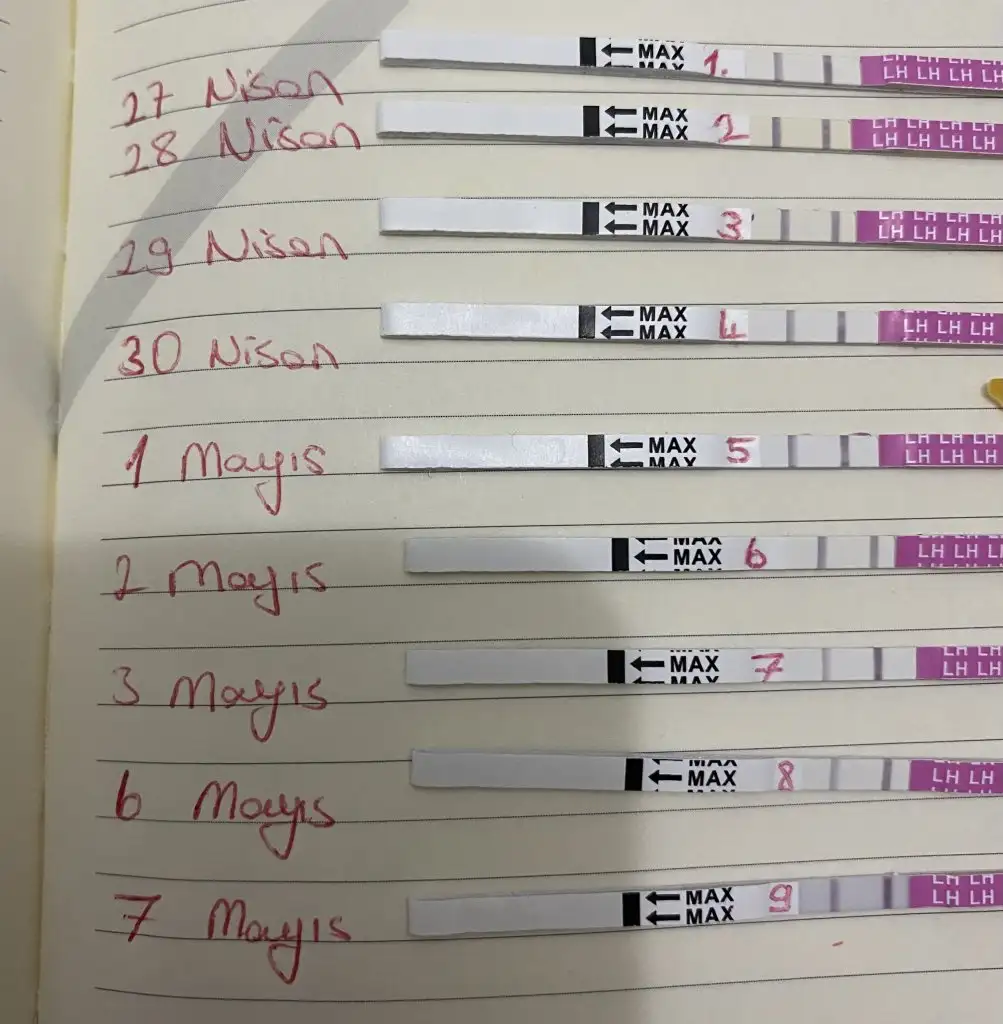 27 Nisan
MAX
MAX
1.
LH LH LH LH
LH LH LH LH
28 Nisan
MAX
MAX
2
LH LH LH LH
LH LH LH LH
29 Nisan
MAX
MAX
3
LH LH LH LH
LH LH LH LH
30 Nisan
MAX
MAX
4
LH LH LH
1 Mayıs
MAX
MAX
5
LH LH LH
LH LH LH
2 Mayıs
MAX
MAX
6
LH LH L
3 Mayıs
MAX
MAX
MAX
7
LH LH
LH LH
6 Mayıs
MAX
MAX
8
LH LH
7 Mayıs
MAX
MAX
9
LH LH
LH LH